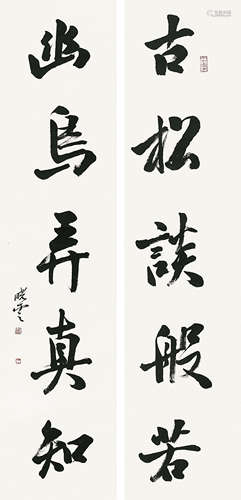 古松談般若
幽鳥弄真知
曉雲